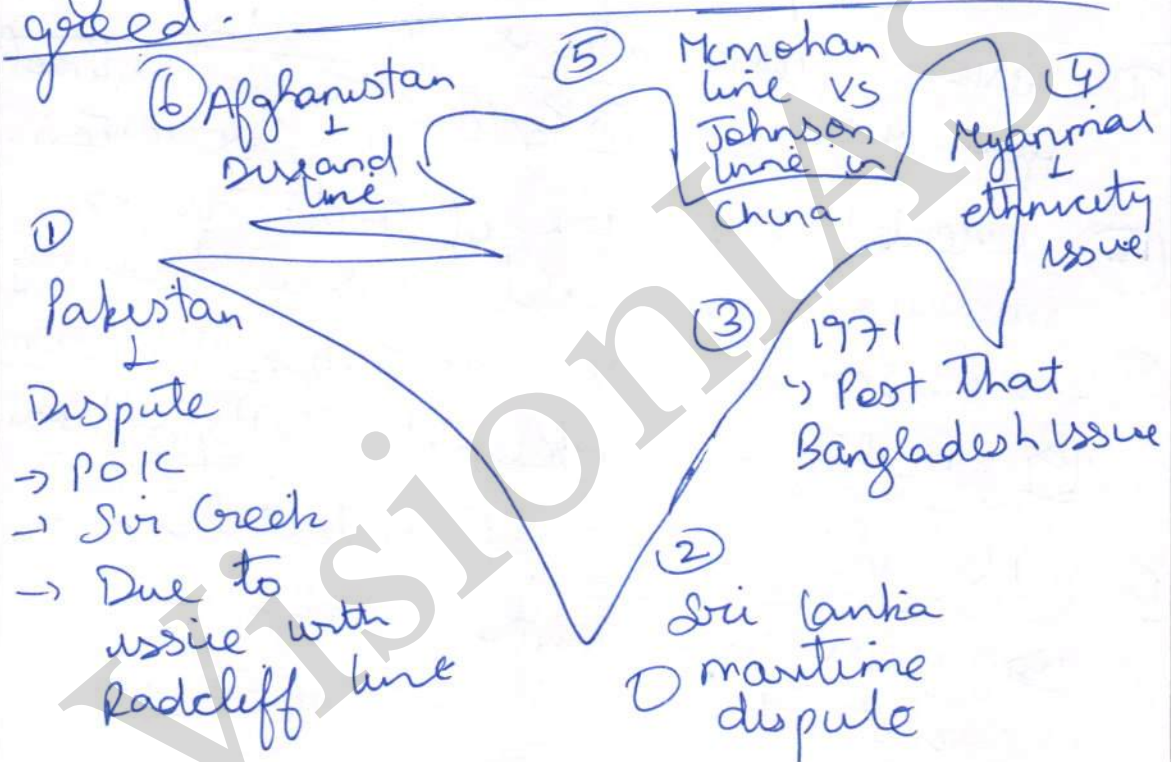 greed.
⑥ Afghanistan
↓
Durand
line
⑤
Mcmohan
line vs
Johnson
line in
China
④
Myanmar
↓
ethnicity
issue
①
Pakistan
↓
Dispute
→ POK
→ Sir Creek
→ Due to
issue with
Radcliff line
③
1971
↳ Post That
Bangladesh issue
②
Sri Lanka
maritime
dispute
VisionIAS